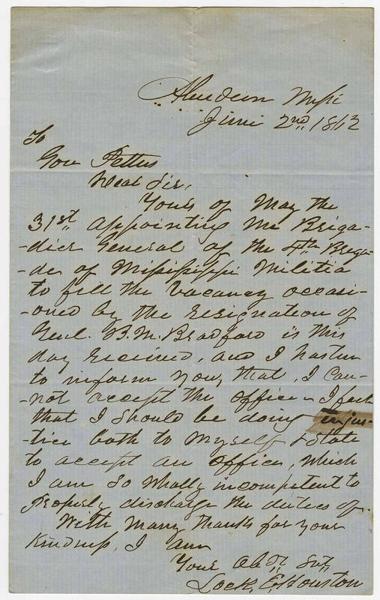 Aberdeen Missi
June 2nd, 1862
To
Gov Pettus
Dear Sir,
Yours of May the
31st, appointing me Briga-
-dier General of the 4th Briga-
-de of Mississippi Militia
to fill the vacancy occasi-
-oned by the resignation of
Genl. B. M. Bradford is this
day received, and I hasten
to inform you, that, I can-
-not accept the office. I feel
that I should be doing injus-
-tice both to myself & State
to accept an office, which
I am so wholly incompetent to
properly discharge the duties of.
With many thanks for your
kindness, I am
Your Obdt Svt,
Lock E. Houston